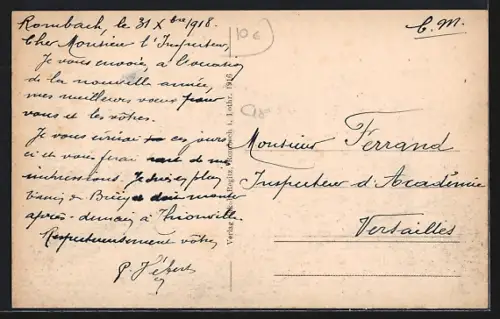 Rombach, le 31 Xbre 1918.
Cher Monsieur l'Inspecteur,
Je vous envoie, à l'occasion
de la nouvelle année,
mes meilleurs vœux pour
vous et les vôtres.
Je vous écrirai ces jours
ci et vous ferai part de mes
impressions. Je suis
Briey
après-demain à Thionville.
Respectueusement vôtre
P. Hébert
10 €
C. M.
Monsieur Ferrand
Inspecteur d'Académie
Versailles
Verlag Rombach i. Lothr. 1916